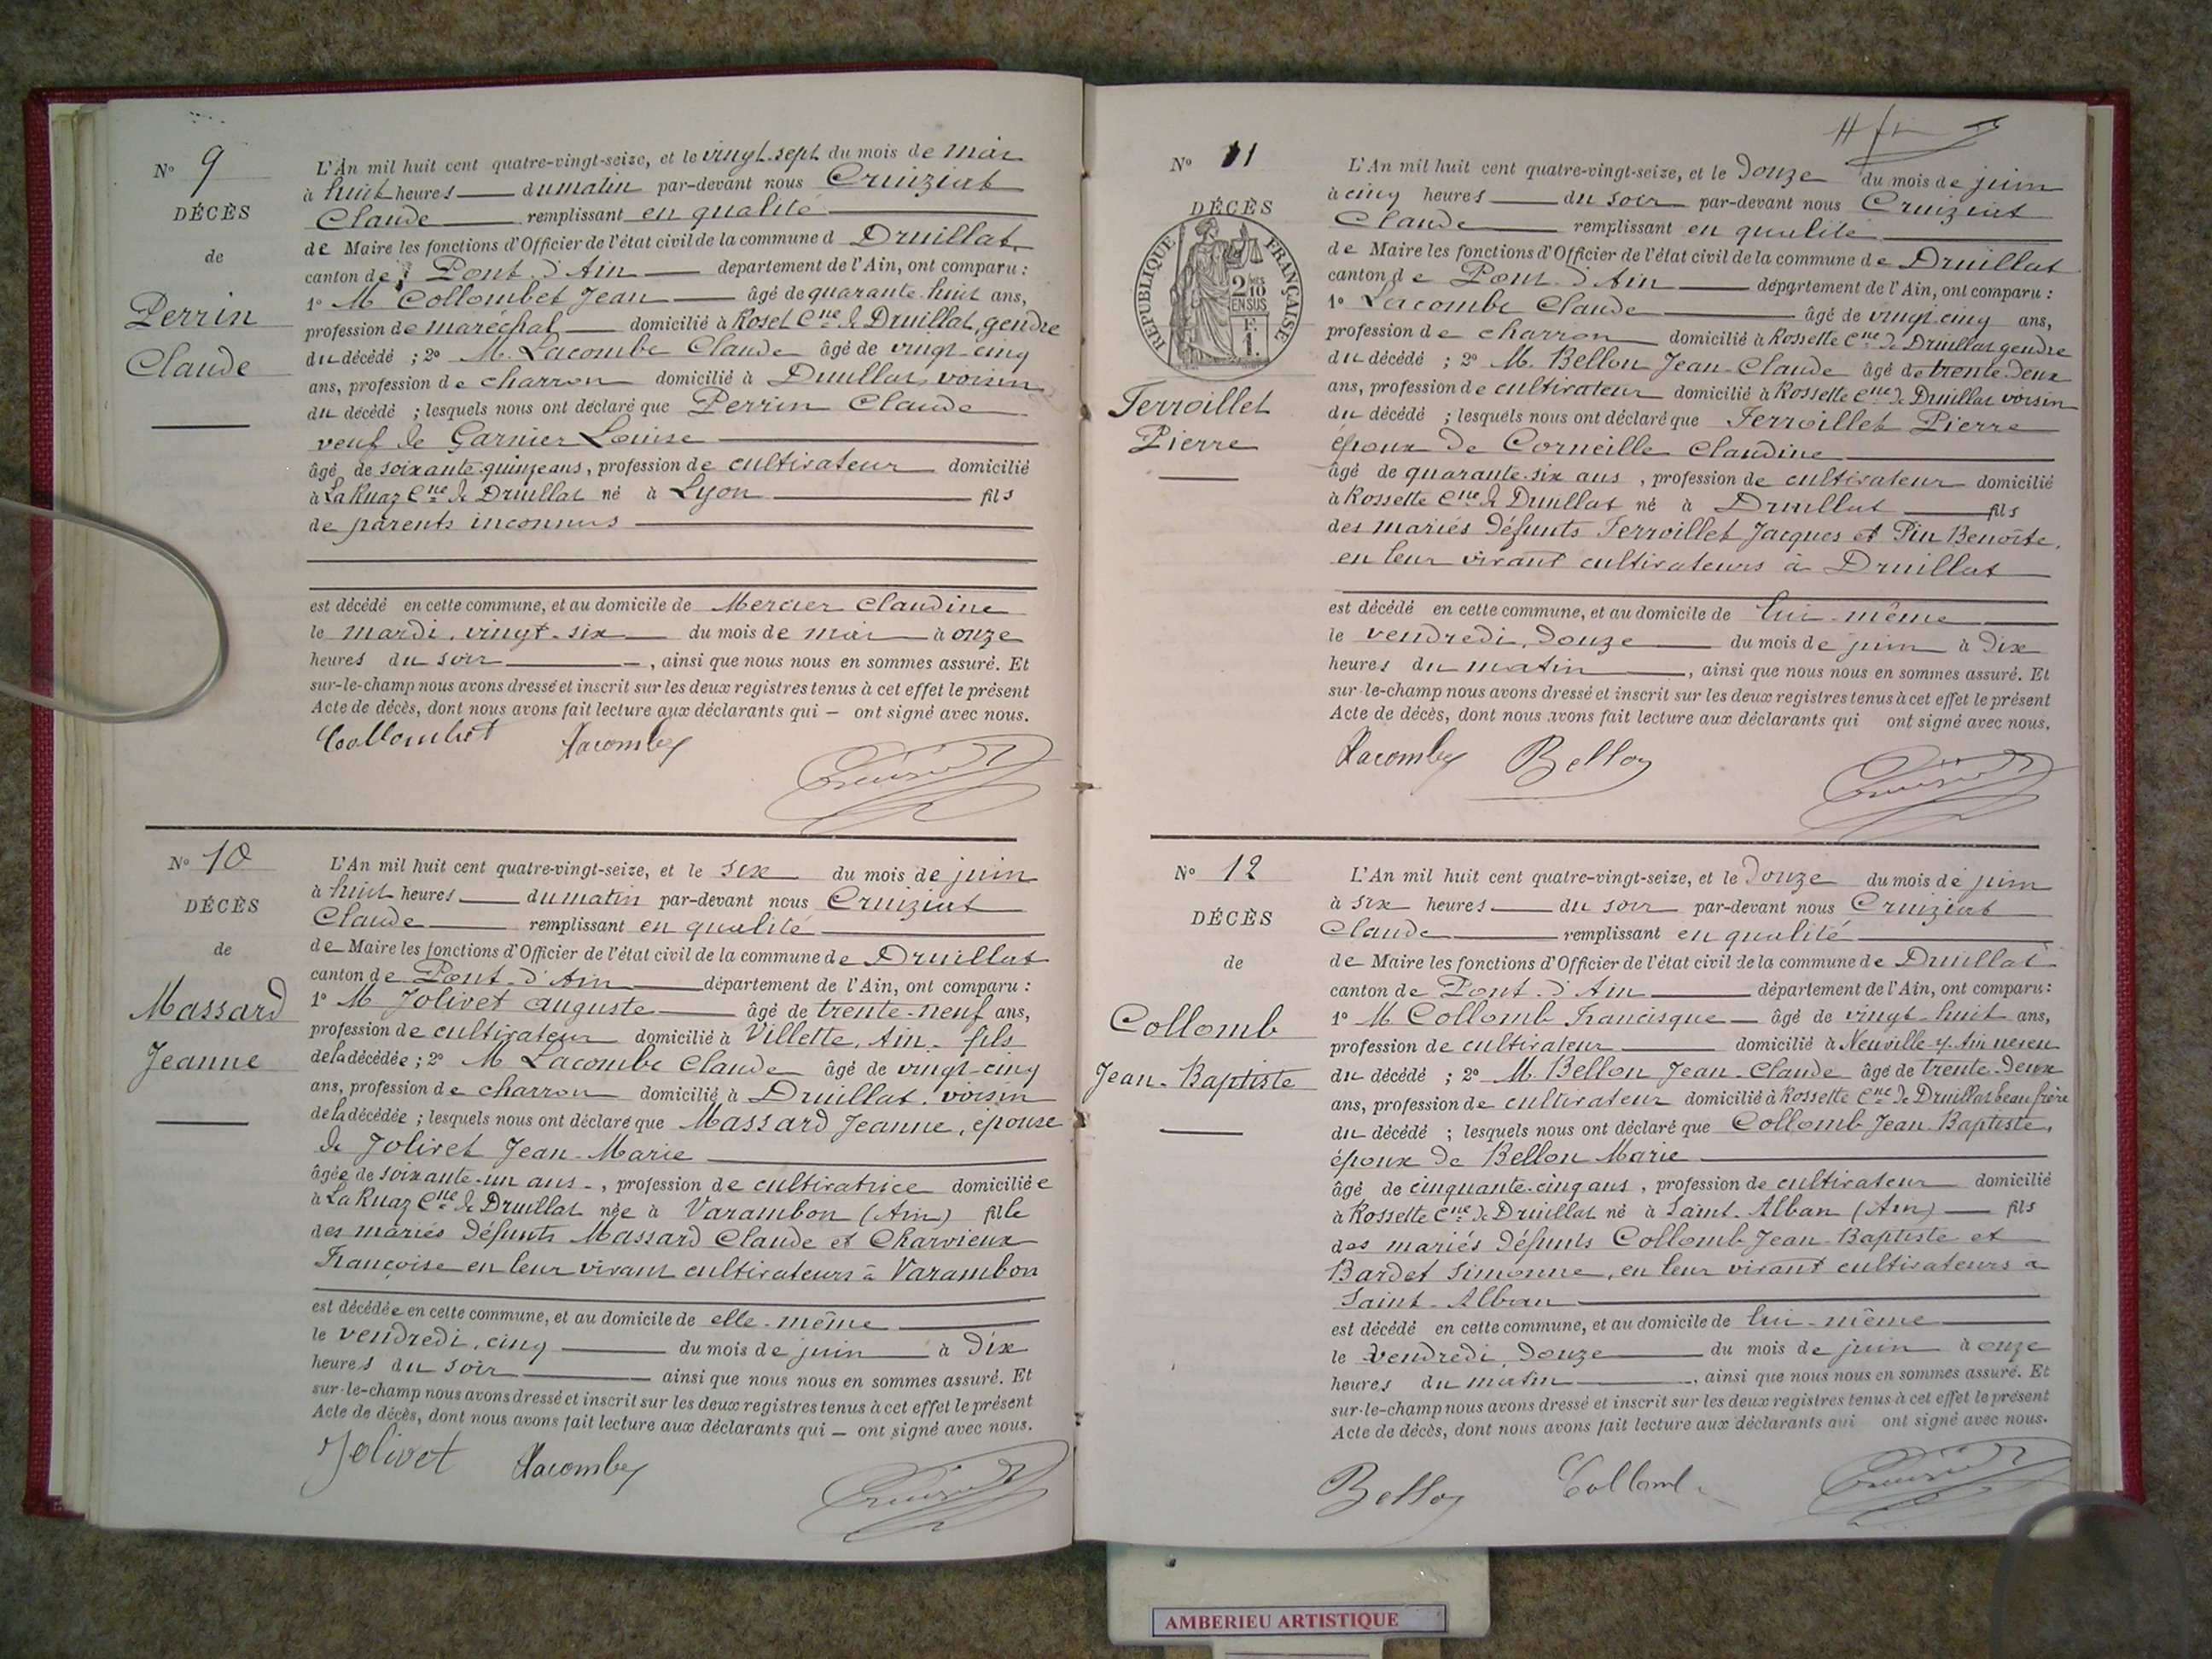 N° 9
DÉCÈS
de
Perrin
Claude
L'An mil huit cent quatre-vingt-seize, et le vingt-sept du mois de mai
à huit heures du matin par-devant nous Cruiziat
Claude remplissant en qualité
de Maire les fonctions d'Officier de l'état civil de la commune d Druillat
canton de Pont-d'Ain departement de l'Ain, ont comparu :
1° M Collombet Jean âgé de quarante-huit ans,
profession de maréchal domicilié à Roset Cne de Druillat, gendre
du décédé ; 2° M. Lacombe Claude âgé de vingt-cinq
ans, profession de charron domicilié à Druillat, voisin
du décédé ; lesquels nous ont déclaré que Perrin Claude
veuf de Garnier Louise
âgé de soixante-quinze ans, profession de cultivateur domicilié
à La Ruaz Cne de Druillat né à Lyon fils
de parents inconnus
est décédé en cette commune, et au domicile de Mercier Claudine
le mardi, vingt-six du mois de mai à onze
heures du soir, ainsi que nous nous en sommes assuré. Et
sur-le-champ nous avons dressé et inscrit sur les deux registres tenus à cet effet le présent
Acte de décès, dont nous avons fait lecture aux déclarants qui — ont signé avec nous.
Collombet Lacombe Cruiziat
N° 10
DÉCÈS
de
Massard
Jeanne
L'An mil huit cent quatre-vingt-seize, et le six du mois de juin
à huit heures du matin par-devant nous Cruiziat
Claude remplissant en qualité
de Maire les fonctions d'Officier de l'état civil de la commune de Druillat
canton de Pont-d'Ain département de l'Ain, ont comparu :
1° M Jolivet Auguste âgé de trente-neuf ans,
profession de cultivateur domicilié à Villette, Ain - fils
de la décédée ; 2° M Lacombe Claude âgé de vingt-cinq
ans, profession de charron domicilié à Druillat, voisin
de la décédée ; lesquels nous ont déclaré que Massard Jeanne, épouse
de Jolivet Jean-Marie
âgée de soixante-un ans -, profession de cultivatrice domiciliée
à La Ruaz Cne de Druillat née à Varambon (Ain) fille
des mariés défunts Massard Claude et Charvieux
Françoise en leur vivant cultivateurs à Varambon
est décédée en cette commune, et au domicile de elle-même
le vendredi, cinq du mois de juin à dix
heures du soir ainsi que nous nous en sommes assuré. Et
sur-le-champ nous avons dressé et inscrit sur les deux registres tenus à cet effet le présent
Acte de décès, dont nous avons fait lecture aux déclarants qui — ont signé avec nous.
Jolivet Lacombe Cruiziat
N° 11
DÉCÈS
RÉPUBLIQUE FRANÇAISE
2/10
EN SUS
F.
1.
Ferroillet
Pierre
L'An mil huit cent quatre-vingt-seize, et le douze du mois de juin
à cinq heures du soir par-devant nous Cruiziat
Claude remplissant en qualité
de Maire les fonctions d'Officier de l'état civil de la commune de Druillat
canton de Pont-d'Ain département de l'Ain, ont comparu :
1° Lacombe Claude âgé de vingt-cinq ans,
profession de charron domicilié à Rossette Cne de Druillat gendre
du décédé ; 2° M. Bellon Jean-Claude âgé de trente-deux
ans, profession de cultivateur domicilié à Rossette Cne de Druillat voisin
du décédé ; lesquels nous ont déclaré que Ferroillet Pierre
époux de Corneille Claudine
âgé de quarante-six ans, profession de cultivateur domicilié
à Rossette Cne de Druillat né à Druillat fils
des mariés défunts Ferroillet Jacques et Pin Benoîte,
en leur vivant cultivateurs à Druillat
est décédé en cette commune, et au domicile de lui-même
le vendredi, douze du mois de juin à dix
heures du matin, ainsi que nous nous en sommes assuré. Et
sur-le-champ nous avons dressé et inscrit sur les deux registres tenus à cet effet le présent
Acte de décès, dont nous avons fait lecture aux déclarants qui ont signé avec nous.
Lacombe Bellon Cruiziat
N° 12
DÉCÈS
de
Collomb
Jean-Baptiste
L'An mil huit cent quatre-vingt-seize, et le douze du mois de juin
à six heures du soir par-devant nous Cruiziat
Claude remplissant en qualité
de Maire les fonctions d'Officier de l'état civil de la commune de Druillat
canton de Pont-d'Ain département de l'Ain, ont comparu :
1° M Collomb Francisque — âgé de vingt-huit ans,
profession de cultivateur domicilié à Neuville-s-Ain neveu
du décédé ; 2° M. Bellon Jean-Claude âgé de trente-deux
ans, profession de cultivateur domicilié à Rossette Cne de Druillat beau frère
du décédé ; lesquels nous ont déclaré que Collomb Jean-Baptiste,
époux de Bellon Marie
âgé de cinquante-cinq ans, profession de cultivateur domicilié
à Rossette Cne de Druillat né à Saint-Alban (Ain) — fils
des mariés défunts Collomb Jean-Baptiste et
Bardet Simonne, en leur vivant cultivateurs à
Saint-Alban
est décédé en cette commune, et au domicile de lui-même
le vendredi, douze du mois de juin à onze
heures du matin, ainsi que nous nous en sommes assuré. Et
sur-le-champ nous avons dressé et inscrit sur les deux registres tenus à cet effet le présent
Acte de décès, dont nous avons fait lecture aux déclarants qui ont signé avec nous.
Bellon Collomb Cruiziat
AMBERIEU ARTISTIQUE